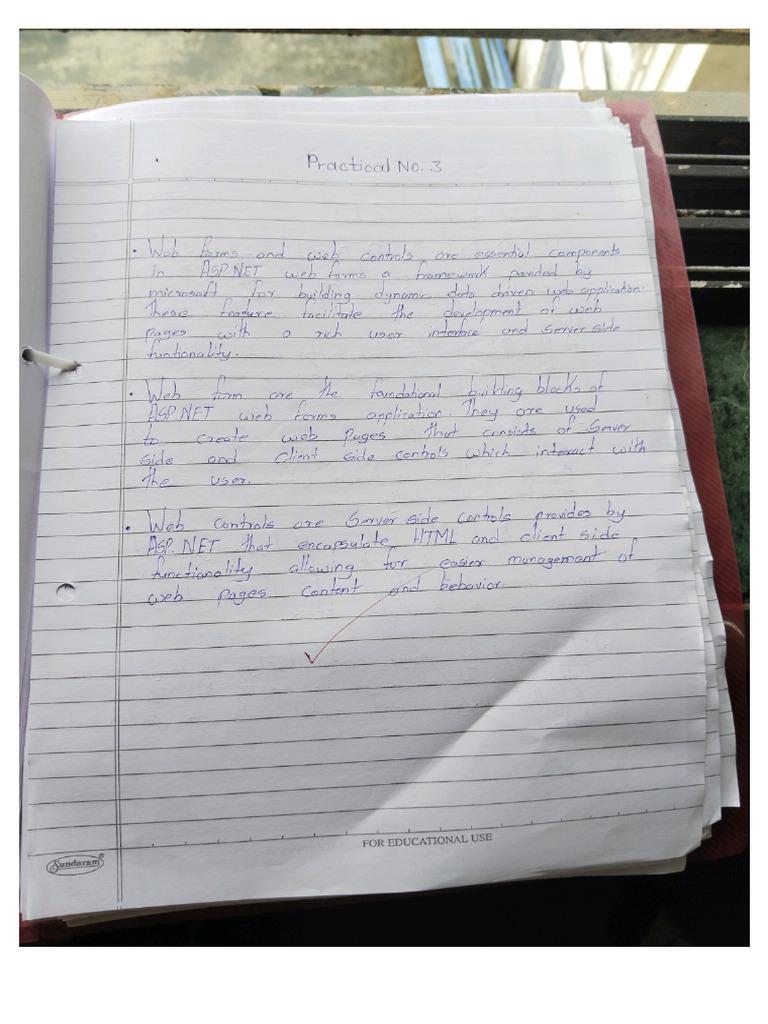 Practical No. 3
• Web forms and web controls are essential components
in ASP.NET web forms a framework provided by
microsoft for building dynamic data driven web application.
These feature facilitate the development of web
pages with a rich user interface and server side
funtionality.
• Web form are the foundational building blocks of
ASP.NET web forms application. They are used
to create web pages that consists of server
side and client side controls which interact with
the user.
• Web controls are server side controls provides by
ASP.NET that encapsulate HTML and client side
functionality allowing for easier management of
web pages content and behavior.
FOR EDUCATIONAL USE
Sundaram®